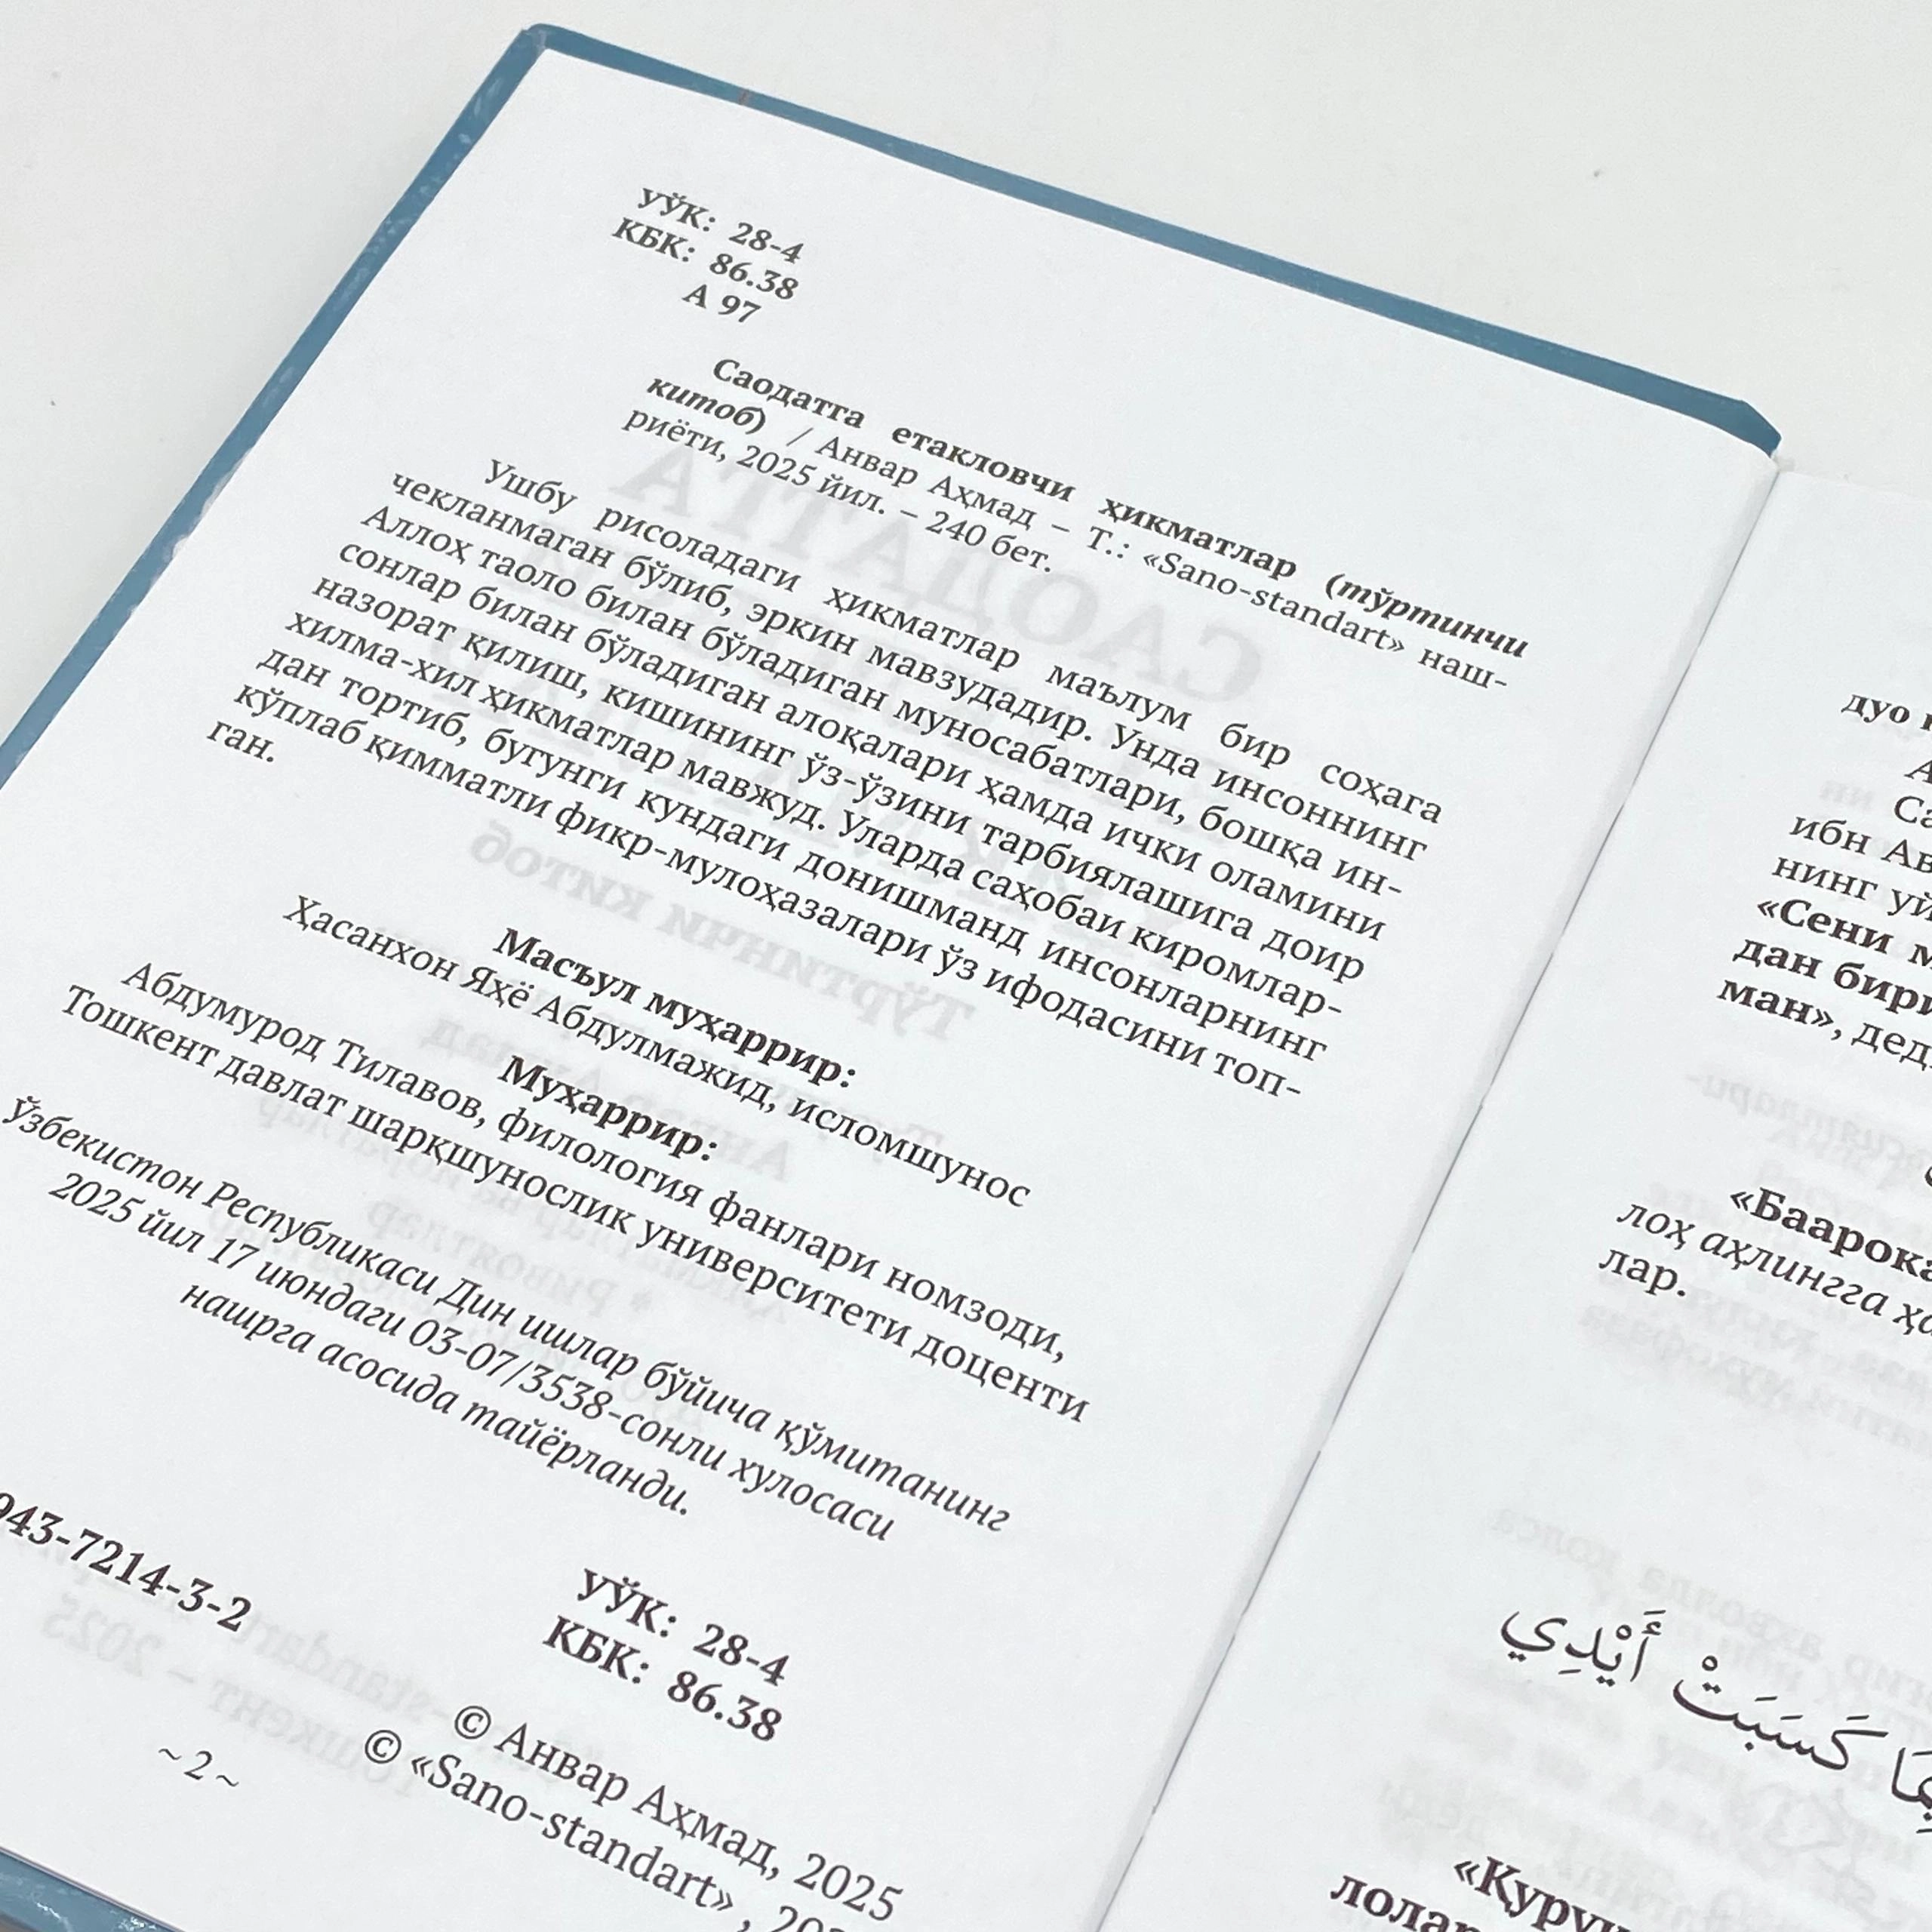 УЎК: 28-4
КБК: 86.38
А 97
Саодатга етакловчи ҳикматлар (тўртинчи
китоб) / Анвар Аҳмад – Т.: «Sano-standart» наш-
риёти, 2025 йил. – 240 бет.
Ушбу рисоладаги ҳикматлар маълум бир соҳага
чекланмаган бўлиб, эркин мавзудадир. Унда инсоннинг
Аллоҳ таоло билан бўладиган муносабатлари, бошқа ин-
сонлар билан бўладиган алоқалари ҳамда ички оламини
назорат қилиш, кишининг ўз-ўзини тарбиялашига доир
хилма-хил ҳикматлар мавжуд. Уларда саҳобаи киромлар-
дан тортиб, бугунги кундаги донишманд инсонларнинг
кўплаб қимматли фикр-мулоҳазалари ўз ифодасини топ-
ган.
Масъул муҳаррир:
Ҳасанхон Яҳё Абдулмажид, исломшунос
Муҳаррир:
Абдумурод Тилавов, филология фанлари номзоди,
Тошкент давлат шарқшунослик университети доценти
Ўзбекистон Республикаси Дин ишлар бўйича қўмитанинг
2025 йил 17 июндаги 03-07/3538-сонли хулосаси
нашрга асосида тайёрланди.
943-7214-3-2
УЎК: 28-4
КБК: 86.38
© Анвар Аҳмад, 2025
© «Sano-standart»,
~ 2 ~
дуо
ибн
нинг
«Сени
дан
ман», дед
«Баарока
лоҳ аҳлингга
лар.
كَسَبَتْ أَيْدِي